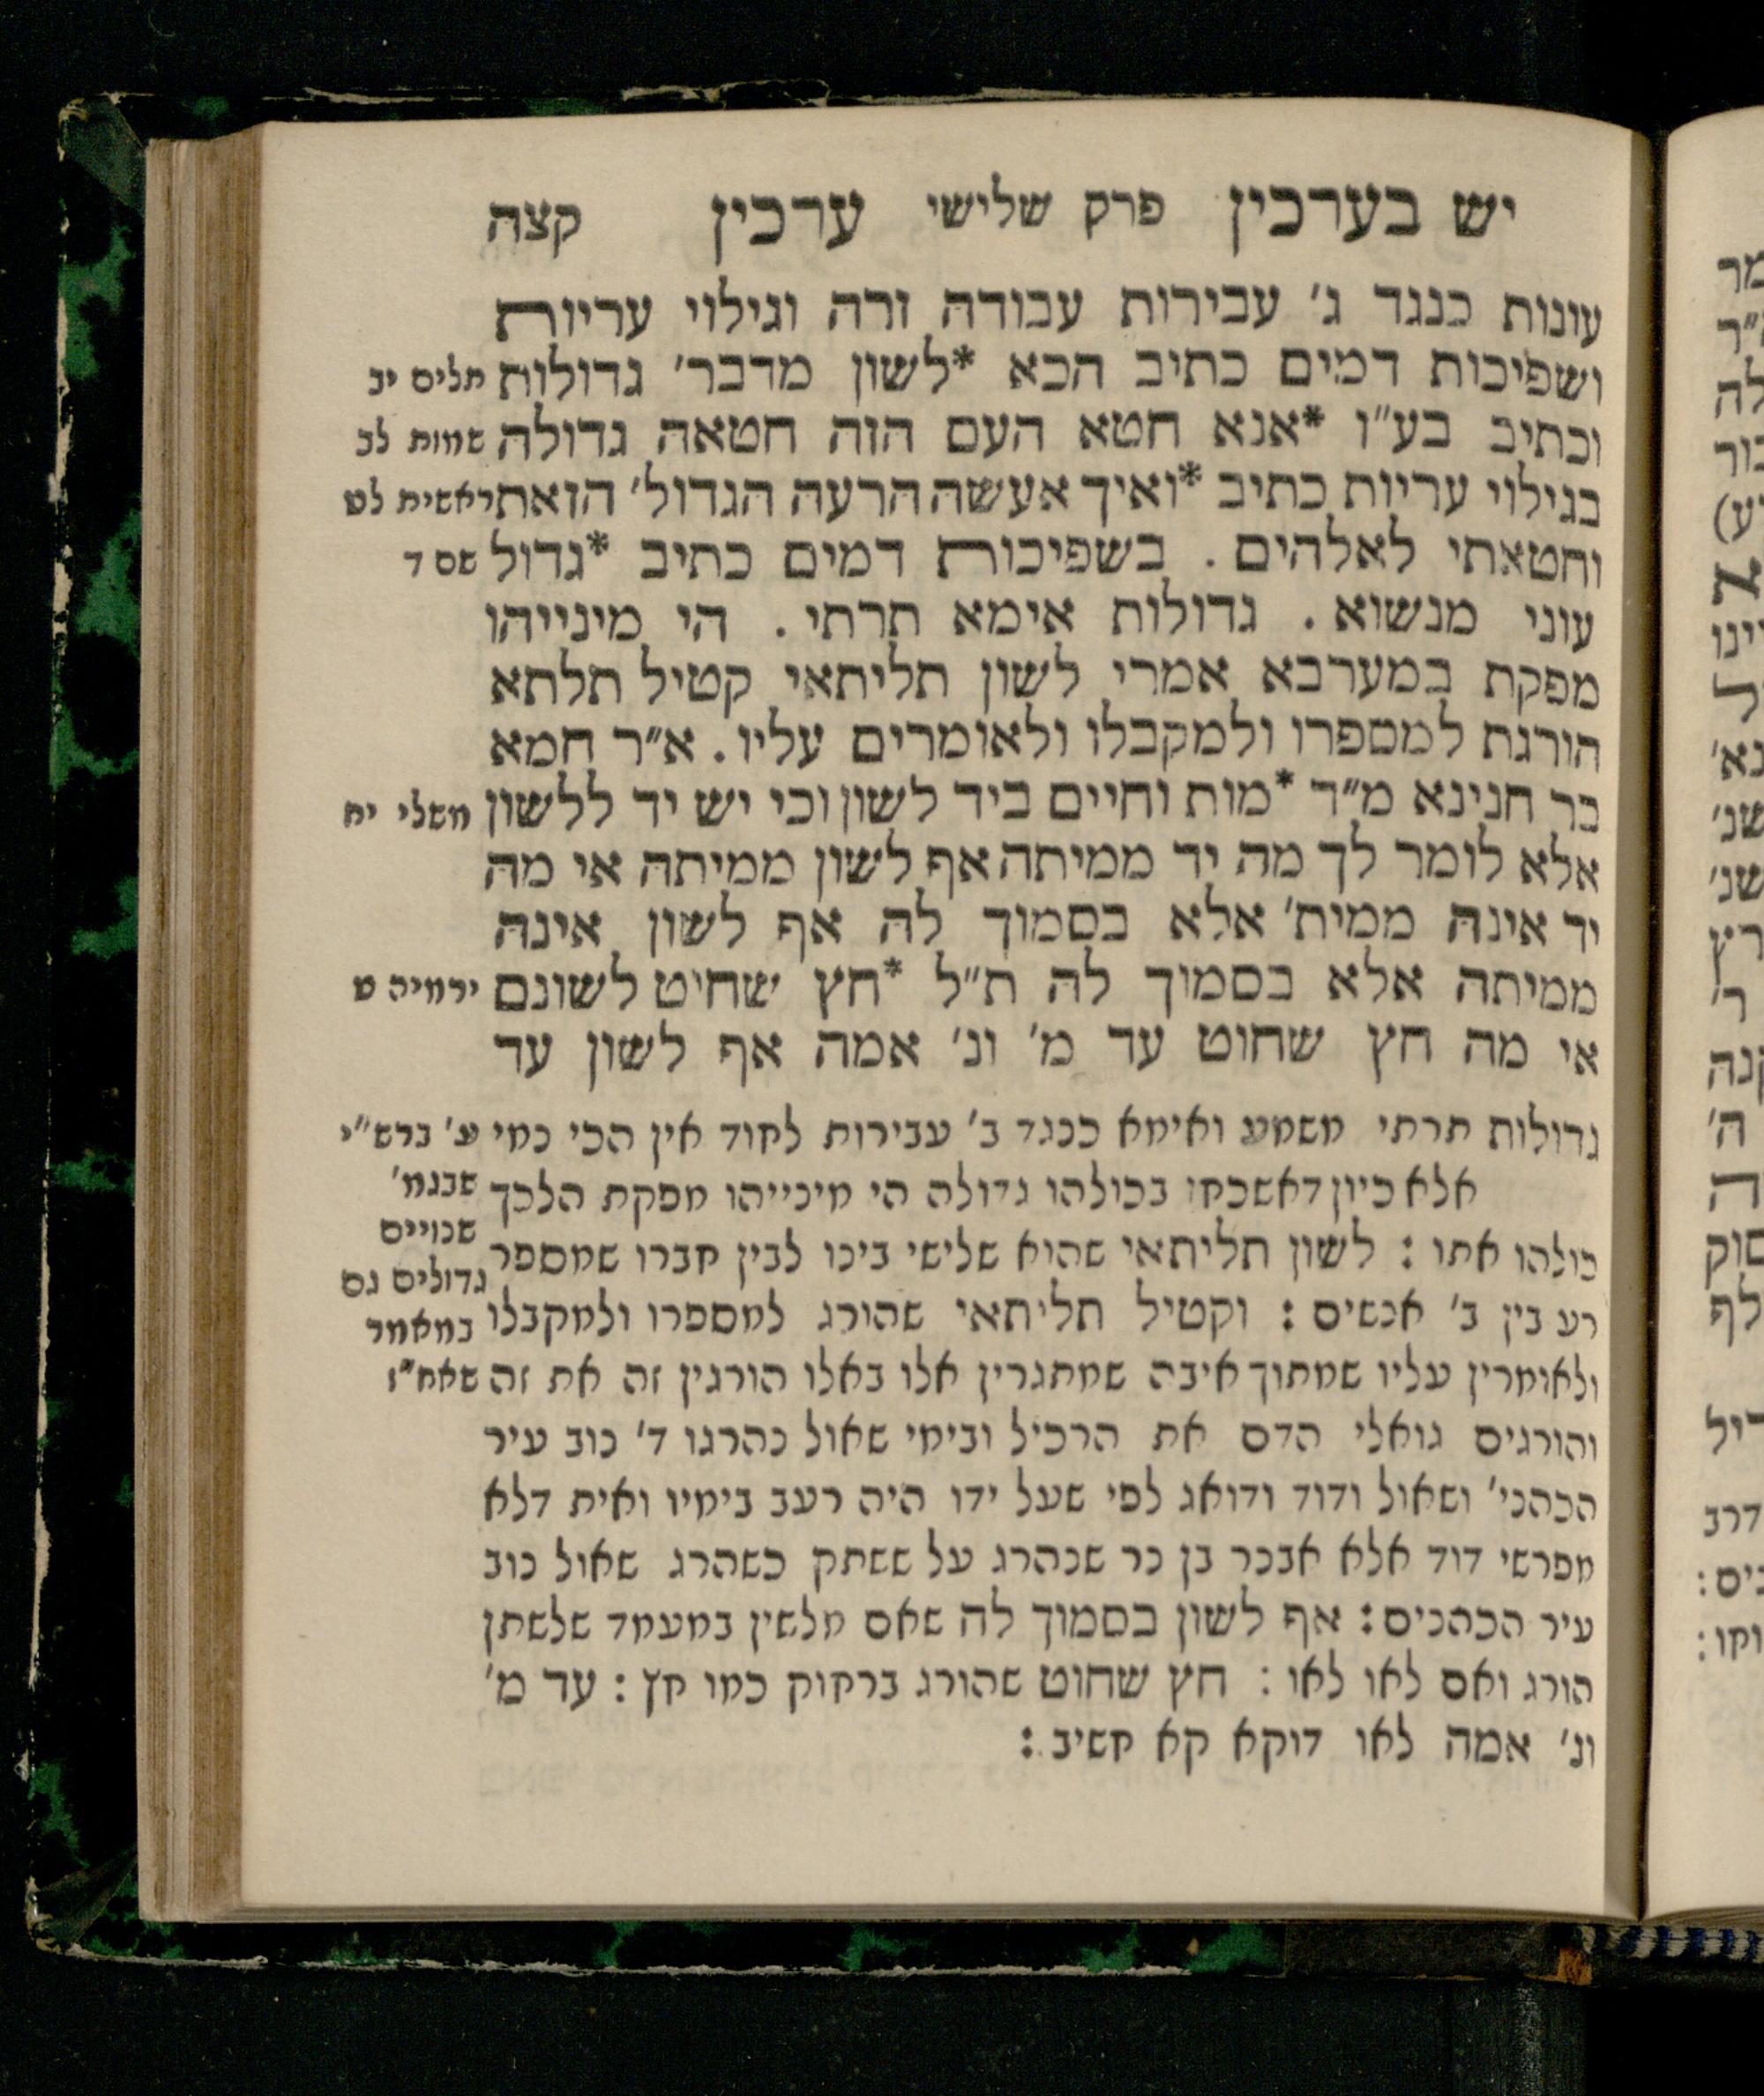 יש בערכין פרק שלישי ערכין קצה
עונות כנגד ג׳ עבירות עבודה זרה וגילוי עריות
ושפיכות דמים כתיב הכא *לשון מדבר׳ גדולות תלים יב
וכתיב בע״ו *אנא חטא העם הזה חטאה גדולה שמות לב
בגילוי עריות כתיב *ואיך אעשה הרעה הגדול׳ הזאת ראשית לט
וחטאתי לאלהים. בשפיכות דמים כתיב *גדול שם ד
עוני מנשוא. גדולות אימא תרתי. הי מינייהו
מפקת במערבא אמרי לשון תליתאי קטיל תלתא
הורגת למספרו ולמקבלו ולאומרים עליו. א״ר חמא
בר חנינא מ״ד *מות וחיים ביד לשון וכי יש יד ללשון משלי יח
אלא לומר לך מה יד ממיתה אף לשון ממיתה אי מה
יד אינה ממית׳ אלא בסמוך לה אף לשון אינה
ממיתה אלא בסמוך לה ת״ל *חץ שחיט לשונם ירמיה ט
אי מה חץ שחוט עד מ׳ ונ׳ אמה אף לשון עד
גדולות תרתי משמע ואימא כנגד ב׳ עבירות לחוד אין הכי נמי ע׳ ברש״י
אלא כיון דאשכחן בכולהו גדולה הי מינייהו מפקת הלכך שבגמ׳
שנויים
כולהו אתו : לשון תליתאי שהוא שלישי בינו לבין חברו שמספר
גדולים גם
רע בין ב׳ אנשים : וקטיל תליתאי שהורג למספרו ולמקבלו במאמר
ולאומרין עליו שמתוך איבה שמתגרין אלו באלו הורגין זה את זה שאח״ז
והורגים גואלי הדם את הרכיל ובימי שאול נהרגו ד׳ נוב עיר
הכהני׳ ושאול ודוד ודואג לפי שעל ידו היה רעב בימיו ואית דלא
מפרשי דוד אלא אבנר בן נר שנהרג על ששתק כשהרג שאול נוב
עיר הכהנים : אף לשון בסמוך לה שאם מלשין במעמד שלשתן
הורג ואם לאו לאו : חץ שחוט שהורג ברחוק כמו חץ : עד מ׳
ונ׳ אמה לאו דוקא קא חשיב :